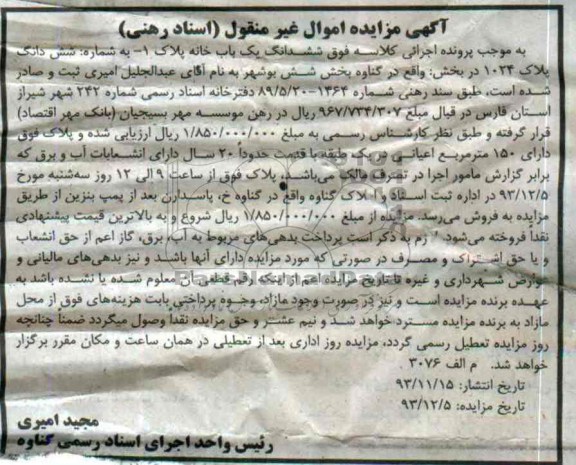 آگهی مزایده اموال غیر منقول (اسناد رهنی)
به موجب پرونده اجرائی کلاسه فوق ششدانگ یک باب خانه پلاک ۱- به شماره: شش دانگ
پلاک ۱۰۲۴ در بخش: واقع در گناوه بخش شش بوشهر به نام آقای عبدالجلیل امیری ثبت و صادر
شده است، طبق سند رهنی شماره ۱۴۶۴-۸۹/۵/۲۰ دفترخانه اسناد رسمی شماره ۲۴۲ شهر شیراز
استان فارس در قبال مبلغ ۹۶۷/۷۳۴/۳۰۷ ریال در رهن موسسه مهر بسیجیان (بانک مهر اقتصاد)
قرار گرفته و طبق نظر کارشناس رسمی به مبلغ ۱/۸۵۰/۰۰۰/۰۰۰ ریال ارزیابی شده و پلاک فوق
دارای ۱۵۰ مترمربع اعیانی در یک طبقه با حدوداً ۲۰ سال دارای انشعابات آب و برق که
برابر گزارش مامور اجرا در تصرف مالک می‌باشد، پلاک فوق از ساعت ۹ الی ۱۲ روز سه‌شنبه مورخ
۹۳/۱۲/۵ در اداره ثبت اسناد و املاک گناوه واقع در گناوه خ، پاسدارن بعد از پمپ بنزین از طریق
مزایده به فروش می‌رسد. مزایده از مبلغ ۱/۸۵۰/۰۰۰/۰۰۰ ریال شروع و به بالاترین قیمت پیشنهادی
نقداً فروخته می‌شود. لازم به ذکر است پرداخت بدهی‌های مربوط به آب، برق، گاز اعم از حق انشعاب
و یا حق اشتراک و مصرف در صورتی که مورد مزایده دارای آنها باشد و نیز بدهی‌های مالیاتی و
عوارض شهرداری و غیره تا تاریخ مزایده اعم از اینکه رقم قطعی آن معلوم شده یا نشده باشد به
عهده برنده مزایده است و نیز در صورت وجود مازاد، وجوه پرداختی بابت هزینه‌های فوق از محل
مازاد به برنده مزایده مسترد خواهد شد و نیم عشر و حق مزایده نقداً وصول میگردد ضمناً چنانچه
روز مزایده تعطیل رسمی گردد، مزایده روز اداری بعد از تعطیلی در همان ساعت و مکان مقرر برگزار
خواهد شد. م الف ۳۰۷۶
تاریخ انتشار: ۹۳/۱۱/۱۵
تاریخ مزایده: ۹۳/۱۲/۵
مجید امیری
رئیس واحد اجرای اسناد رسمی گناوه